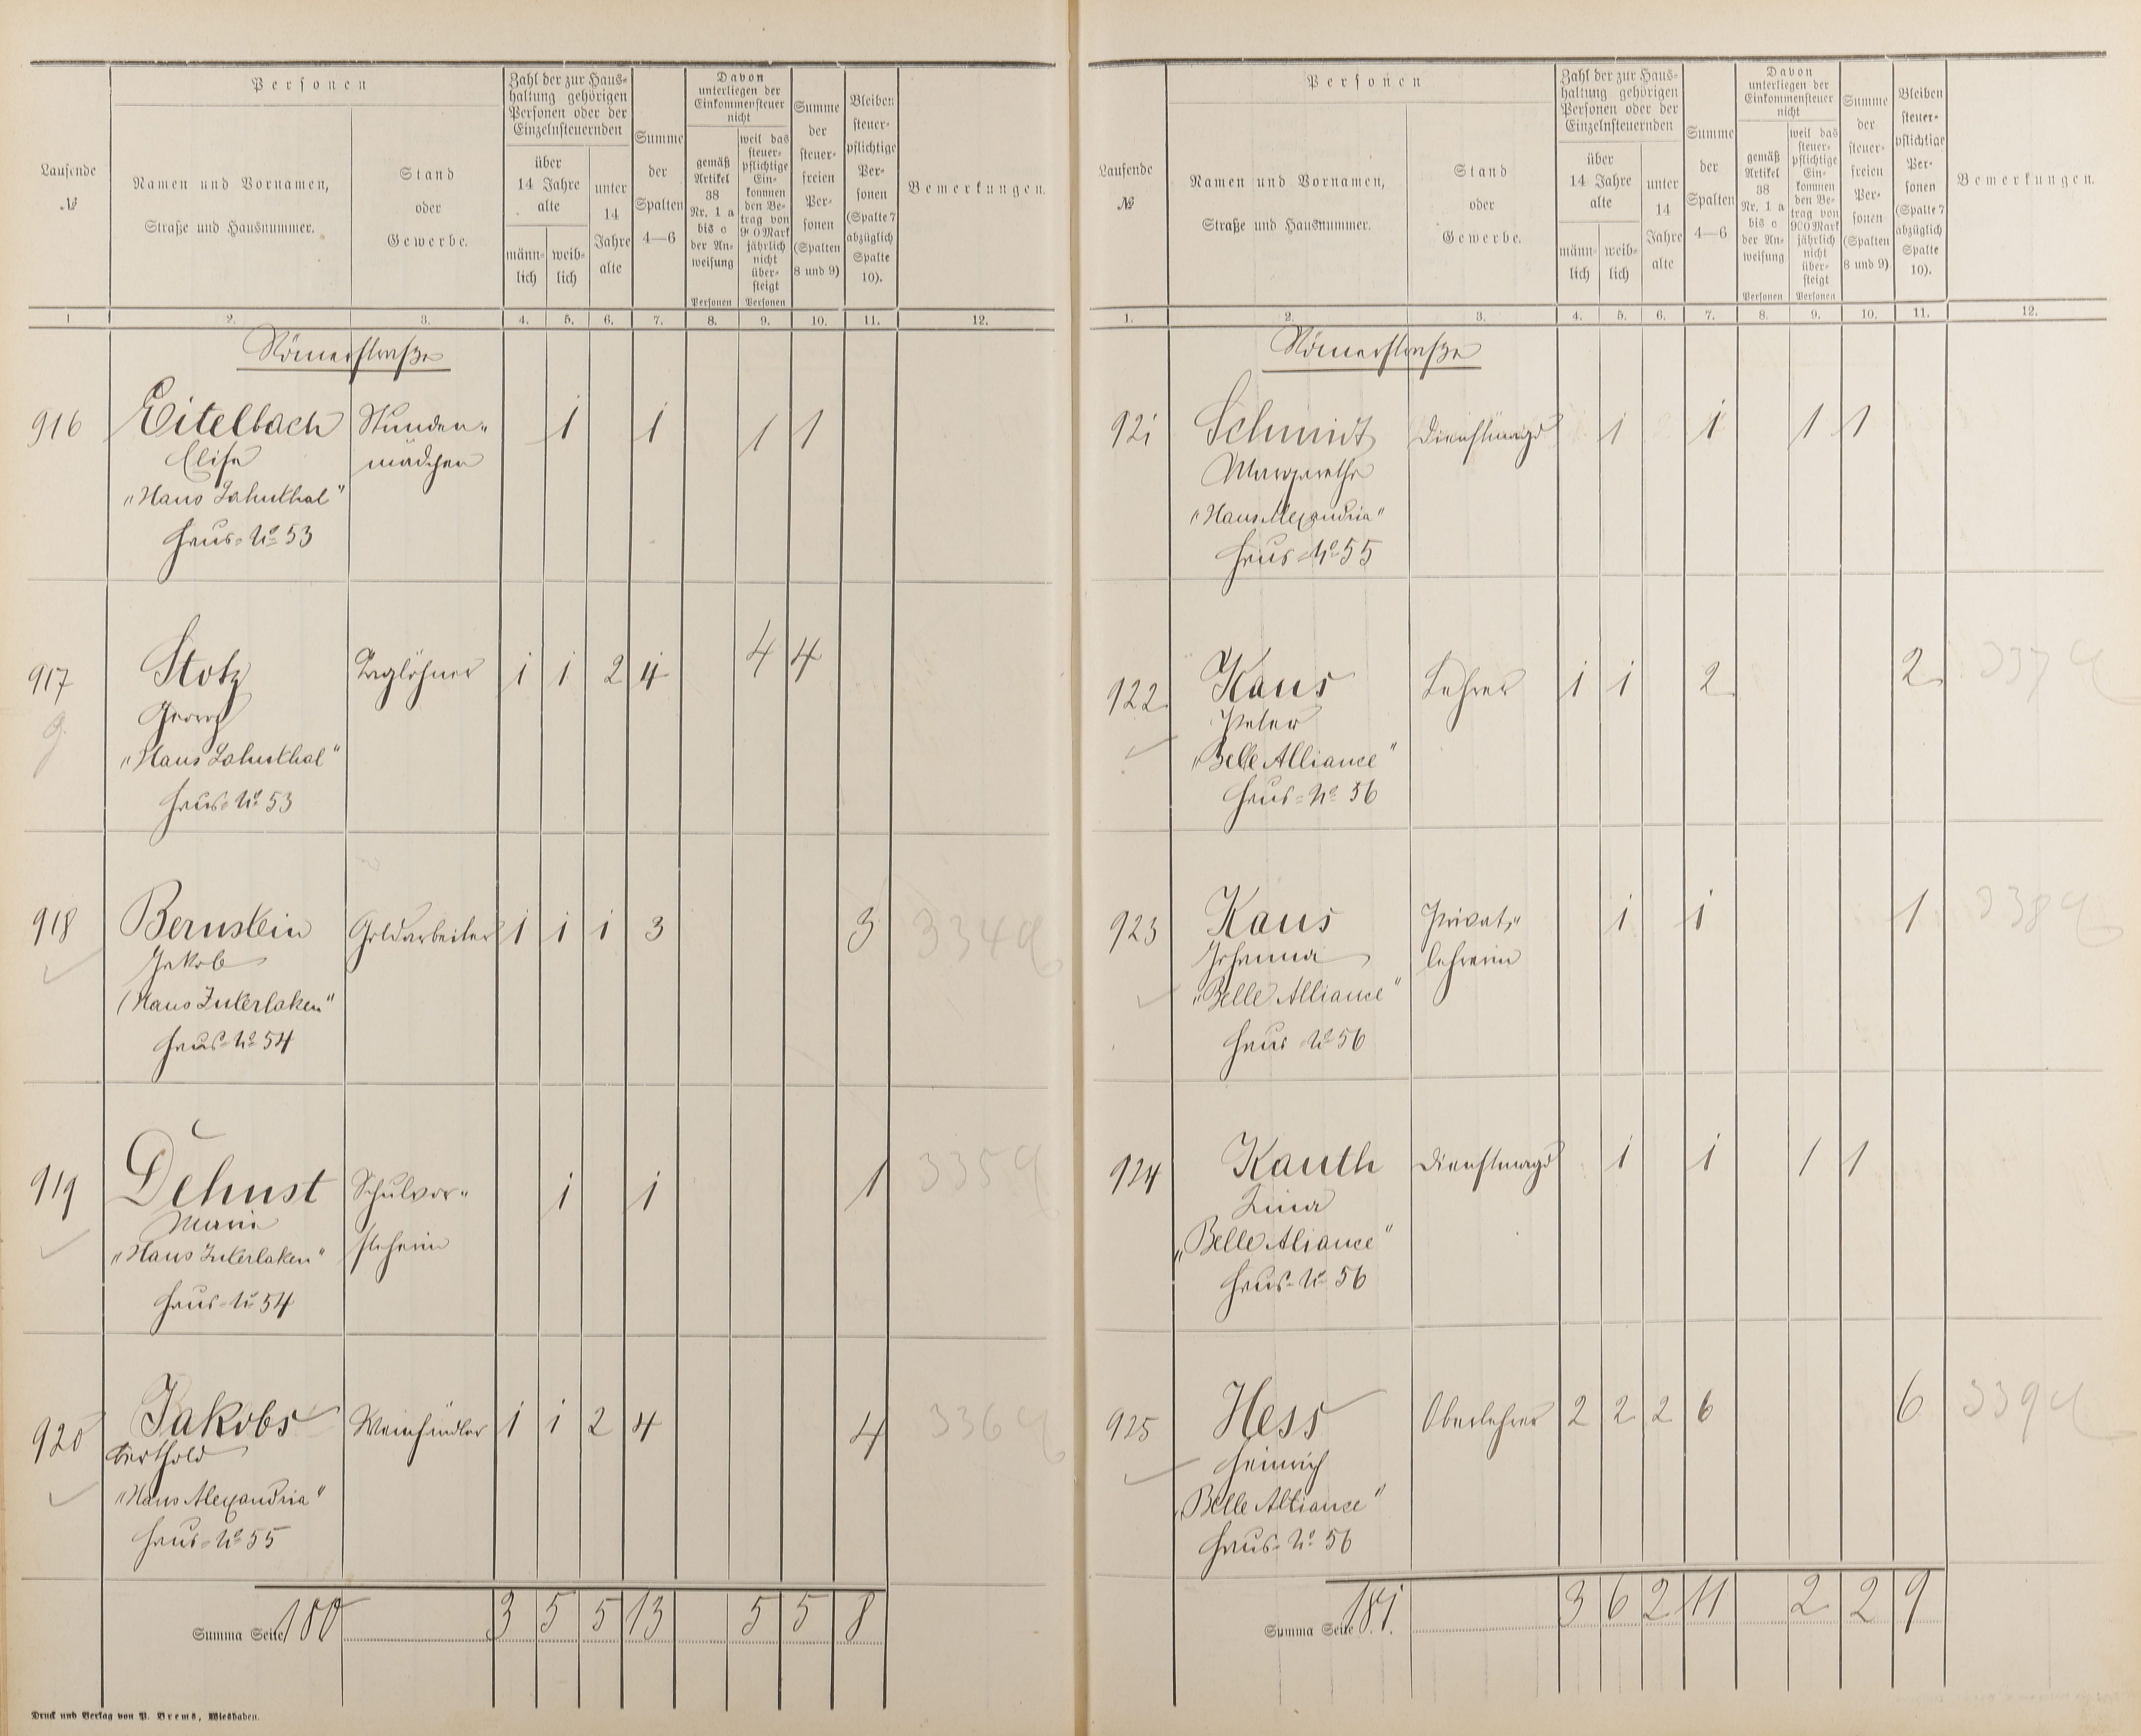 Personen
Laufende
№
Namen und Vornamen,
Straße und Hausnummer.
Stand
oder
Gewerbe.
Zahl der zur Haus-
haltung gehörigen
Personen oder der
Einzelnsteuernden
über
14 Jahre
alte
männ-
lich
weib-
lich
unter
14
Jahre
alte
Summe
der
Spalten
4—6
Davon
unterliegen der
Einkommensteuer
nicht
gemäß
Artikel
38
Nr. 1 a
bis c
der An-
weisung
Personen
weil das
steuer-
pflichtige
Ein-
kommen
den Be-
trag von
900 Mark
jährlich
nicht
über-
steigt
Personen
Summe
der
steuer-
freien
Per-
sonen
(Spalten
8 und 9)
Bleiben
steuer-
pflichtige
Per-
sonen
(Spalte 7
abzüglich
Spalte
10).
Bemerkungen.
1 2. 3. 4. 5. 6. 7. 8. 9. 10. 11. 12.
Römerstraße
916 Eitelbach Stunden- 1 1 1 1
Elise mädchen
"Haus Lahnthal"
Haus-No 53
917 Stotz Taglöhner 1 1 2 4 4 4
Georg
"Haus Lahnthal"
Haus-No 53
918 Bernstein Goldarbeiter 1 1 1 3 3 334
Jakob
(Haus Interlaken"
Haus-No 54
919 Dehust Schulvor- 1 1 1 335
Marie steherin
"Haus Interlaken"
Haus-No 54
920 Jakobs Weinhändler 1 1 2 4 4 336
Berthold
"Haus Alexandria"
Haus-No 55
Summa Seite 180 3 5 5 13 5 5 8
Druck und Verlag von P. Brems, Wiesbaden.
Personen
Laufende
№
Namen und Vornamen,
Straße und Hausnummer.
Stand
oder
Gewerbe.
Zahl der zur Haus-
haltung gehörigen
Personen oder der
Einzelnsteuernden
über
14 Jahre
alte
männ-
lich
weib-
lich
unter
14
Jahre
alte
Summe
der
Spalten
4—6
Davon
unterliegen der
Einkommensteuer
nicht
gemäß
Artikel
38
Nr. 1 a
bis c
der An-
weisung
Personen
weil das
steuer-
pflichtige
Ein-
kommen
den Be-
trag von
900 Mark
jährlich
nicht
über-
steigt
Personen
Summe
der
steuer-
freien
Per-
sonen
(Spalten
8 und 9)
Bleiben
steuer-
pflichtige
Per-
sonen
(Spalte 7
abzüglich
Spalte
10).
Bemerkungen.
1. 2. 3. 4. 5. 6. 7. 8. 9. 10. 11. 12.
Römerstraße
921 Schmidt Dienstmagd 1 1 1 1
Margarethe
"Haus Alexandria"
Haus-No 55
922 Kaus Lehrer 1 1 2 2 337
Peter
"Belle Alliance"
Haus-No 56
923 Kaus Privat- 1 1 1 338
Johanna lehrerin
"Belle Alliance"
Haus-No 56
924 Kauth Dienstmagd 1 1 1 1
Lina
"Belle Aliance"
Haus-No 56
925 Hess Oberlehrer 2 2 2 6 6 339
Heinrich
"Belle Alliance"
Haus-No 56
Summa Seite 181. 3 6 2 11 2 2 9